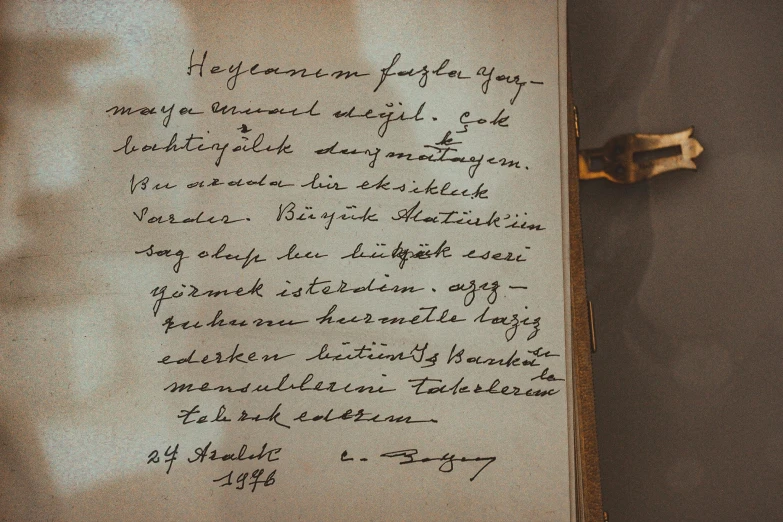 Heyecanım fazla yaz-
maya müsait değil. Çok
bahtiyarlık duymaktayım.
Bu arada bir eksiklik
vardır. Büyük Atatürk'ün
sağ olup bu büyük eseri
görmek isterdim. aziz-
ruhunu hürmetle taziz
ederken bütün İş Bankası
mensublerini takdirlerimle
tebrik ederim.
27 Aralık C. Bayar
1976